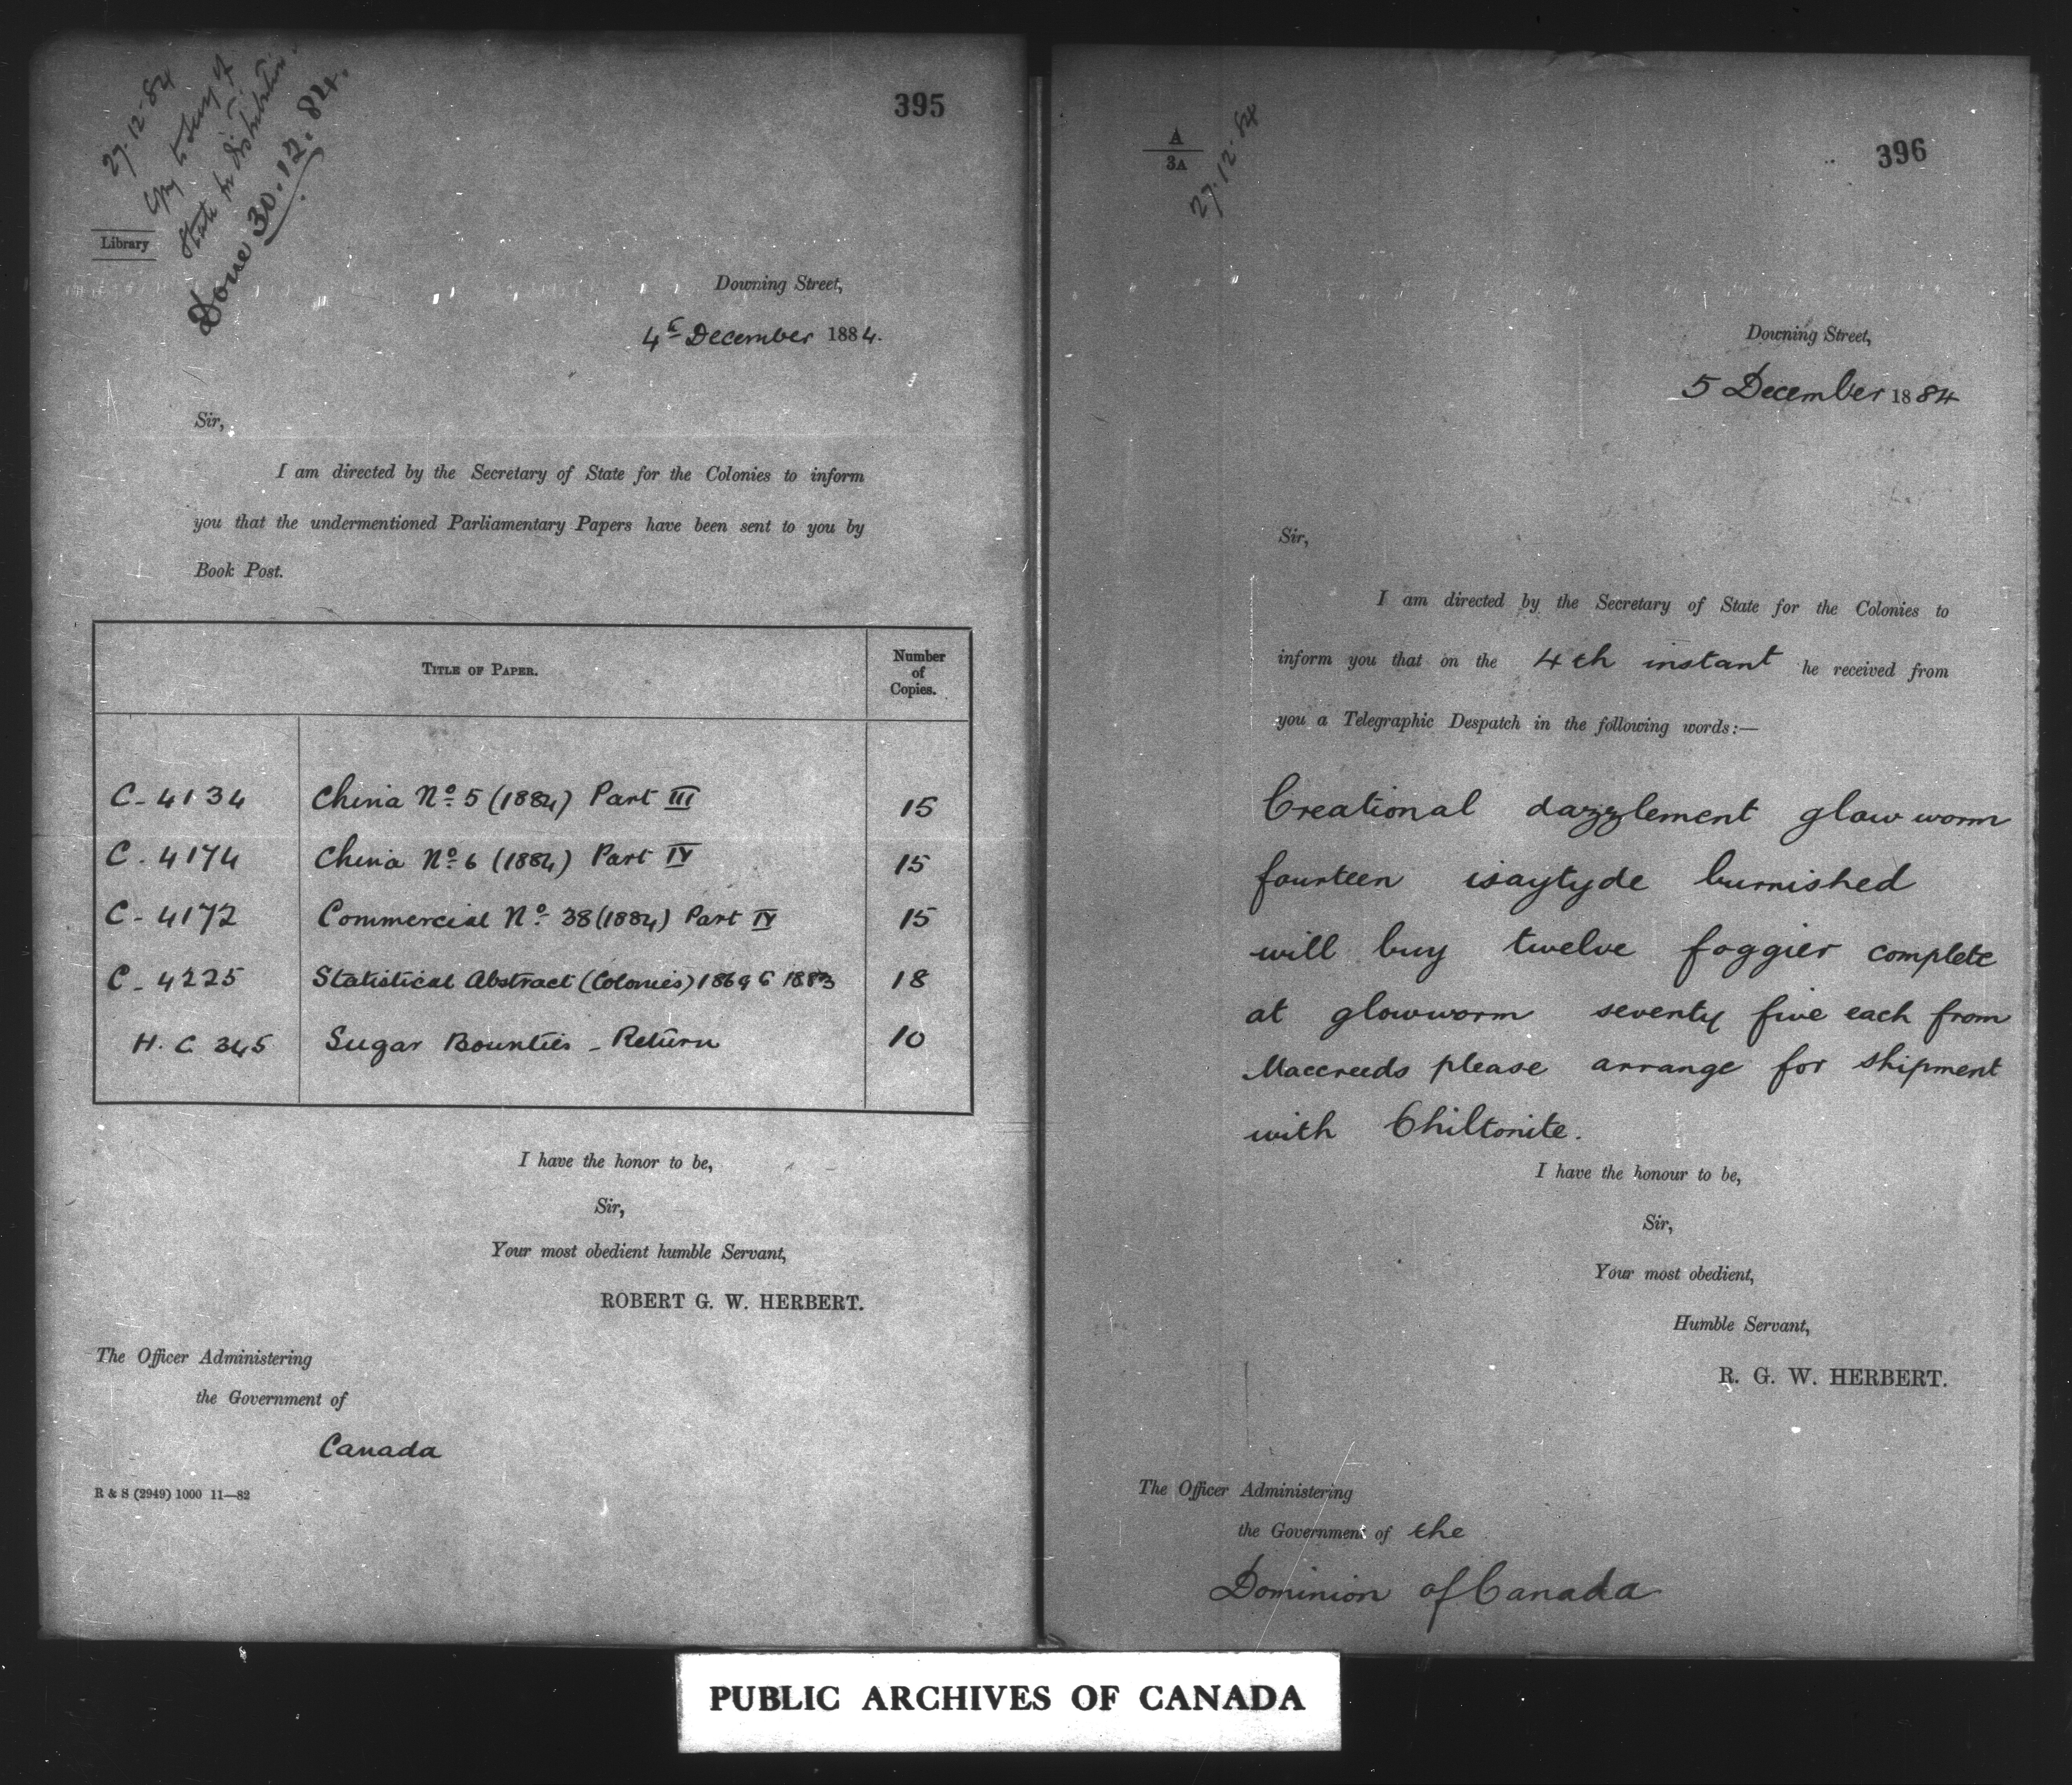 27.12.84
Copy to Secy of
State for distribution.
Done 30.12.84.
395
Library
Downing Street,
4th December 1884.
Sir,
I am directed by the Secretary of State for the Colonies to inform
you that the undermentioned Parliamentary Papers have been sent to you by
Book Post.
TITLE OF PAPER.
Number
of
Copies.
C - 4134 China No. 5 (1884) Part III 15
C. 4174 China No. 6 (1884) Part IV 15
C - 4172 Commercial No. 38 (1884) Part IV 15
C - 4225 Statistical Abstract (Colonies) 1869 to 1883 18
H. C. 345 Sugar Bounties - Return 10
I have the honor to be,
Sir,
Your most obedient humble Servant,
ROBERT G. W. HERBERT.
The Officer Administering
the Government of
Canada
R & S (2949) 1000 11—82
A
3A
27.12.84
396
Downing Street,
5 December 1884
Sir,
I am directed by the Secretary of State for the Colonies to
inform you that on the 4th instant he received from
you a Telegraphic Despatch in the following words:—
Creational dazzlement glow worm
fourteen isaytyde burnished
will buy twelve foggier complete
at glowworm seventy five each from
Maccreeds please arrange for shipment
with Chiltonite.
I have the honour to be,
Sir,
Your most obedient,
Humble Servant,
R. G. W. HERBERT.
The Officer Administering
the Government of the
Dominion of Canada
PUBLIC ARCHIVES OF CANADA